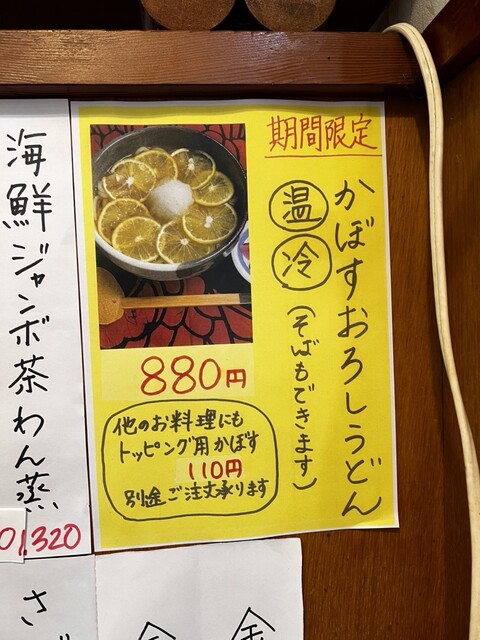 期間限定
かぼすおろしうどん
温
冷
(そばもできます)
880円
他のお料理にも
トッピング用かぼす
110円
別途ご注文承ります
海鮮ジャンボ茶わん蒸
1,320
さ